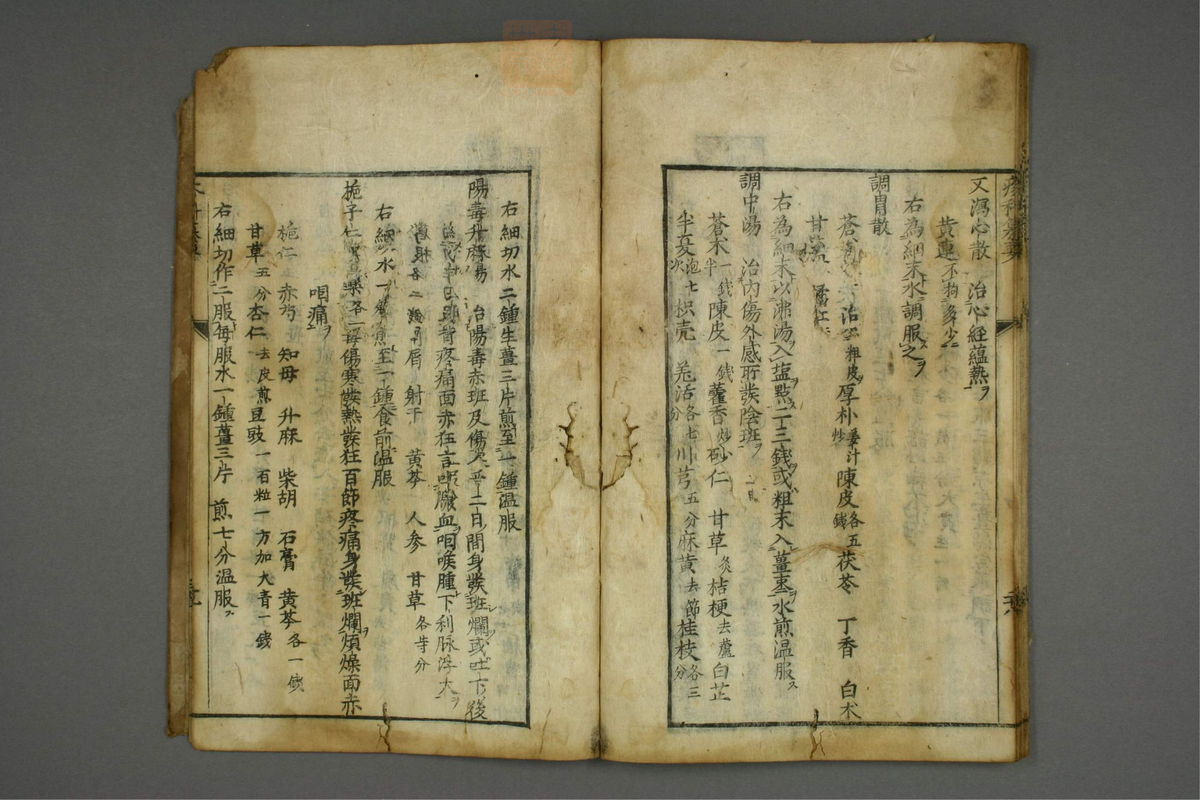 又瀉心散 治心經蘊熱ヲ
黄連不拘多少
右為細末水調服之ヲ
調胃散
厚朴姜汁炒 陳皮各五錢 茯苓 丁香 白朮
甘草 藿香
右為細末以沸湯入塩點二三錢或粗末入薑棗水煎温服ス
調中湯 治内傷外感所發陰班ヲ
蒼朮一錢半 陳皮一錢 藿香炒 砂仁 甘草灸 桔梗去蘆 白芷
半夏泡七次 枳壳 羌活各七分 川芎五分 麻黄去節 桂枝各三分
右細切水二鍾生薑三片煎至一鍾温服
陽毒升麻湯 治陽毒赤班及傷寒一二日間身發班爛或吐下後
皆疼痛面赤狂言吐膿血咽喉腫下利脉浮大
各二錢 射干 黄芩 人參 甘草各等分
右水一鍾煎至一鍾食前温服
梔子仁 傷寒發熱發狂百節疼痛身發班爛煩燥面赤
咽痛ヲ
梔仁 赤芍 知母 升麻 柴胡 石膏 黄芩各一錢
甘草五分 杏仁去皮煎 豆豉一百粒一方加大青一錢
右細切作二服毎服水一鍾薑三片 煎七分温服ス